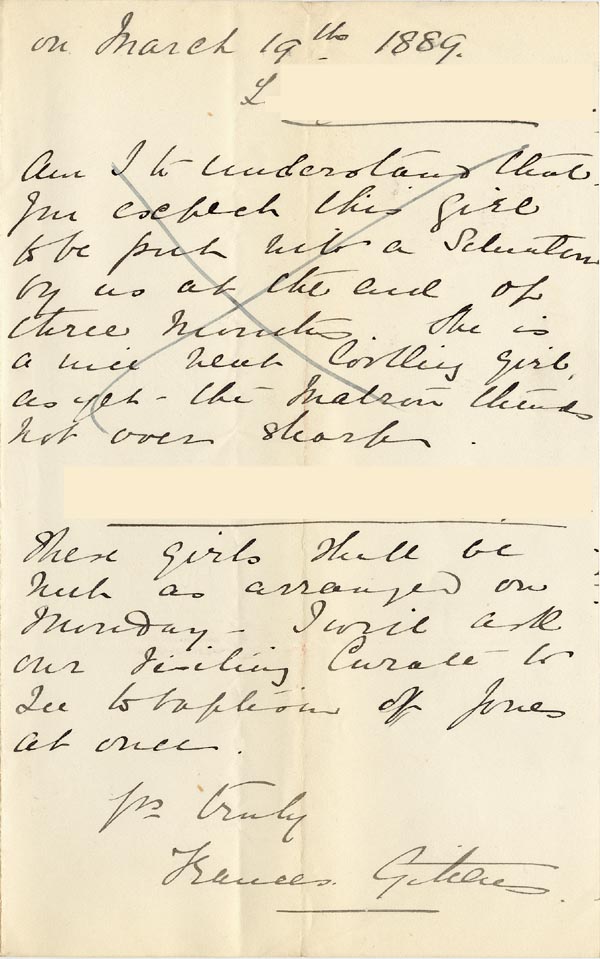 on March 19th 1889.
L
Am I to understand that
you expect this girl
to be put into a Situation
by us at the end of
three months. She is
a nice neat looking girl,
as yet - the Matron thinks
not over sharp.
These girls shall be
met as arranged on
Monday - I will ask
our Visiting Curate to
see to baptism of Jones
at once.
yrs truly
Frances